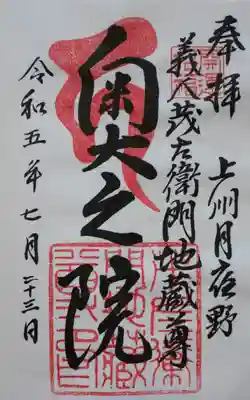 奉拝 上州月夜野
義人茂左衛門地蔵尊
奥之院
令和五年七月二十三日